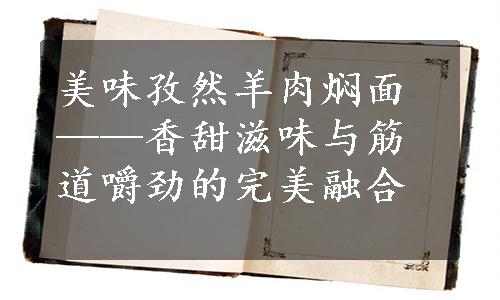 美味孜然羊肉焖面
——香甜滋味与筋
道嚼劲的完美融合